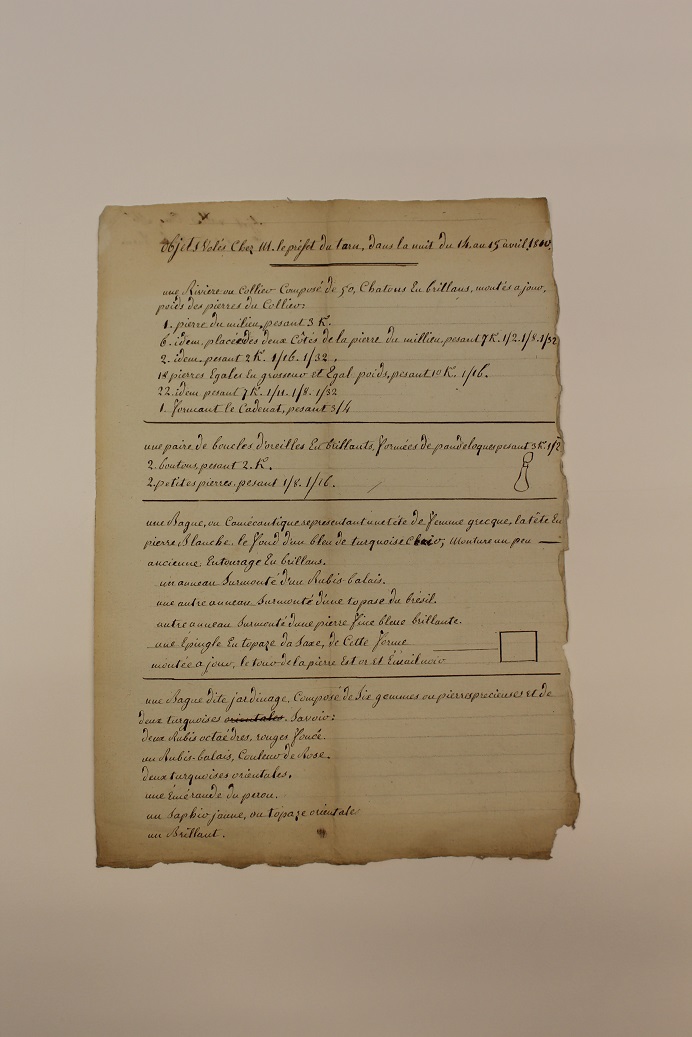 objets Volés Chez M. le préfet du tarn, dans la nuit du 14. au 15 avril 1810.
une Rivière ou Collier Composé de 50, Chatons En brillans, montés a jour,
poids des pierres du Collier:
1. pierre du milieu, pesant 3 K.
6. idem. placées des deux Côtés de la pierre du millieu, pesant 7 K. 1/2. 1/8. 1/32
2. idem. pesant 2 K. 1/16. 1/32.
18 pierres Egales En grosseur et Egal poids, pesant 10 K. 1/16.
22. idem pesant 7 K. 1/4. 1/8. 1/32
1. formant le Cadenat, pesant 3/4
une paire de boucles d'oreilles En brillants, formées de pandeloques pesant 3 K. 1/2
2. boutons pesant 2. K.
2. petites pierres. pesant 1/8. 1/16.
une Bague, ou Camée antique representant une tête de femme grecque, la tête En
pierre Blanche. le fond d'un bleu de turquoise; Monture un peu
ancienne. Entourage En brillans.
un anneau Surmonté d'un Rubis-balais.
une autre anneau Surmonté d'une topase du brésil.
autre anneau Surmonté d'une pierre fine bleue brillante.
une Épingle En topaze da Saxe, de Cette forme
montée a jour, le tour de la pierre Est or et Émail noir
une Bague dite jardinage, Composé de Six gemmes ou pierres precieuses et de
deux turquoises orientales. Savoir:
deux Rubis octaédres, rouges foncé.
un Rubis-balais, Couleur de Rose.
deux turquoises orientales.
une Émeraude du perou.
un Saphir jaune, ou topaze orientale
un Brillant.